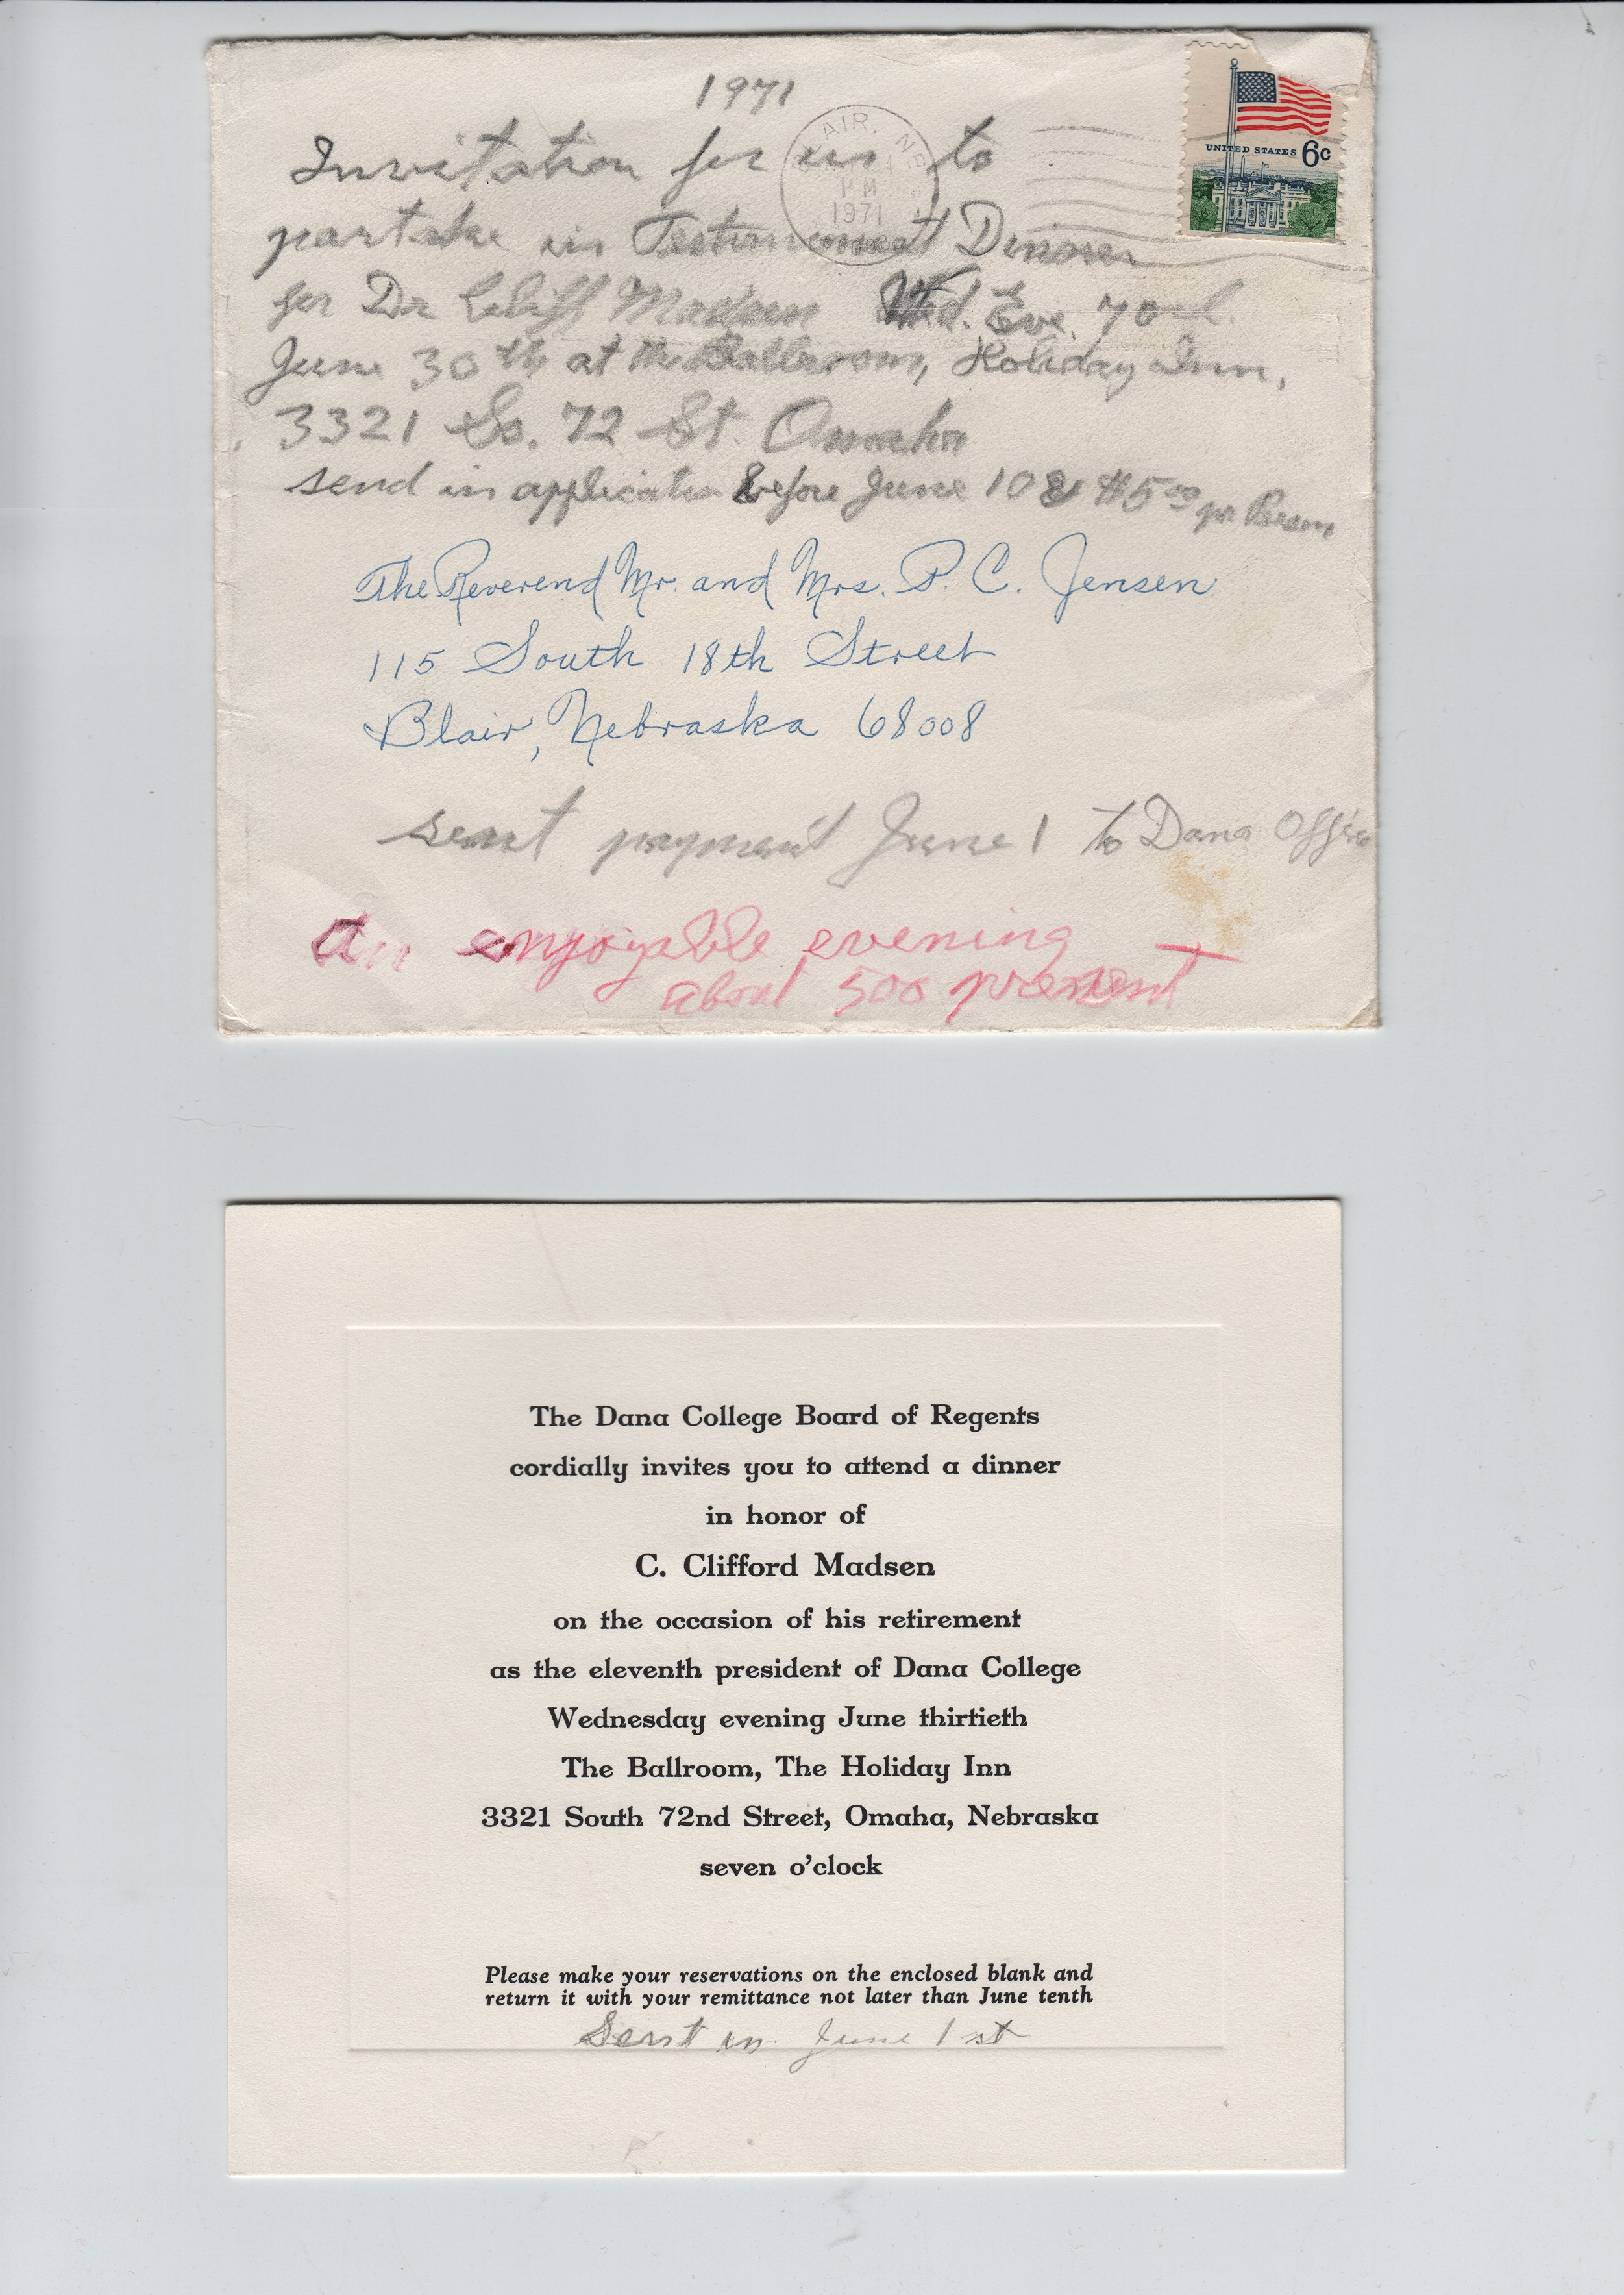 1971
Invitation for us to
partake in Testimonial Dinner
for Dr Cliff Madsen Wed. Eve. 7
June 30th at the Ballroom, Holiday Inn,
3321 So. 72 St. Omaha
send in application before June 10 & $5.00 per Person
AIR, NE
PM
1971
UNITED STATES 6c
The Reverend Mr. and Mrs. P. C. Jensen
115 South 18th Street
Blair, Nebraska 68008
sent payment June 1 to Dana Office
An enjoyable evening
about 500 present
The Dana College Board of Regents
cordially invites you to attend a dinner
in honor of
C. Clifford Madsen
on the occasion of his retirement
as the eleventh president of Dana College
Wednesday evening June thirtieth
The Ballroom, The Holiday Inn
3321 South 72nd Street, Omaha, Nebraska
seven o'clock
Please make your reservations on the enclosed blank and
return it with your remittance not later than June tenth
Sent in June 1st